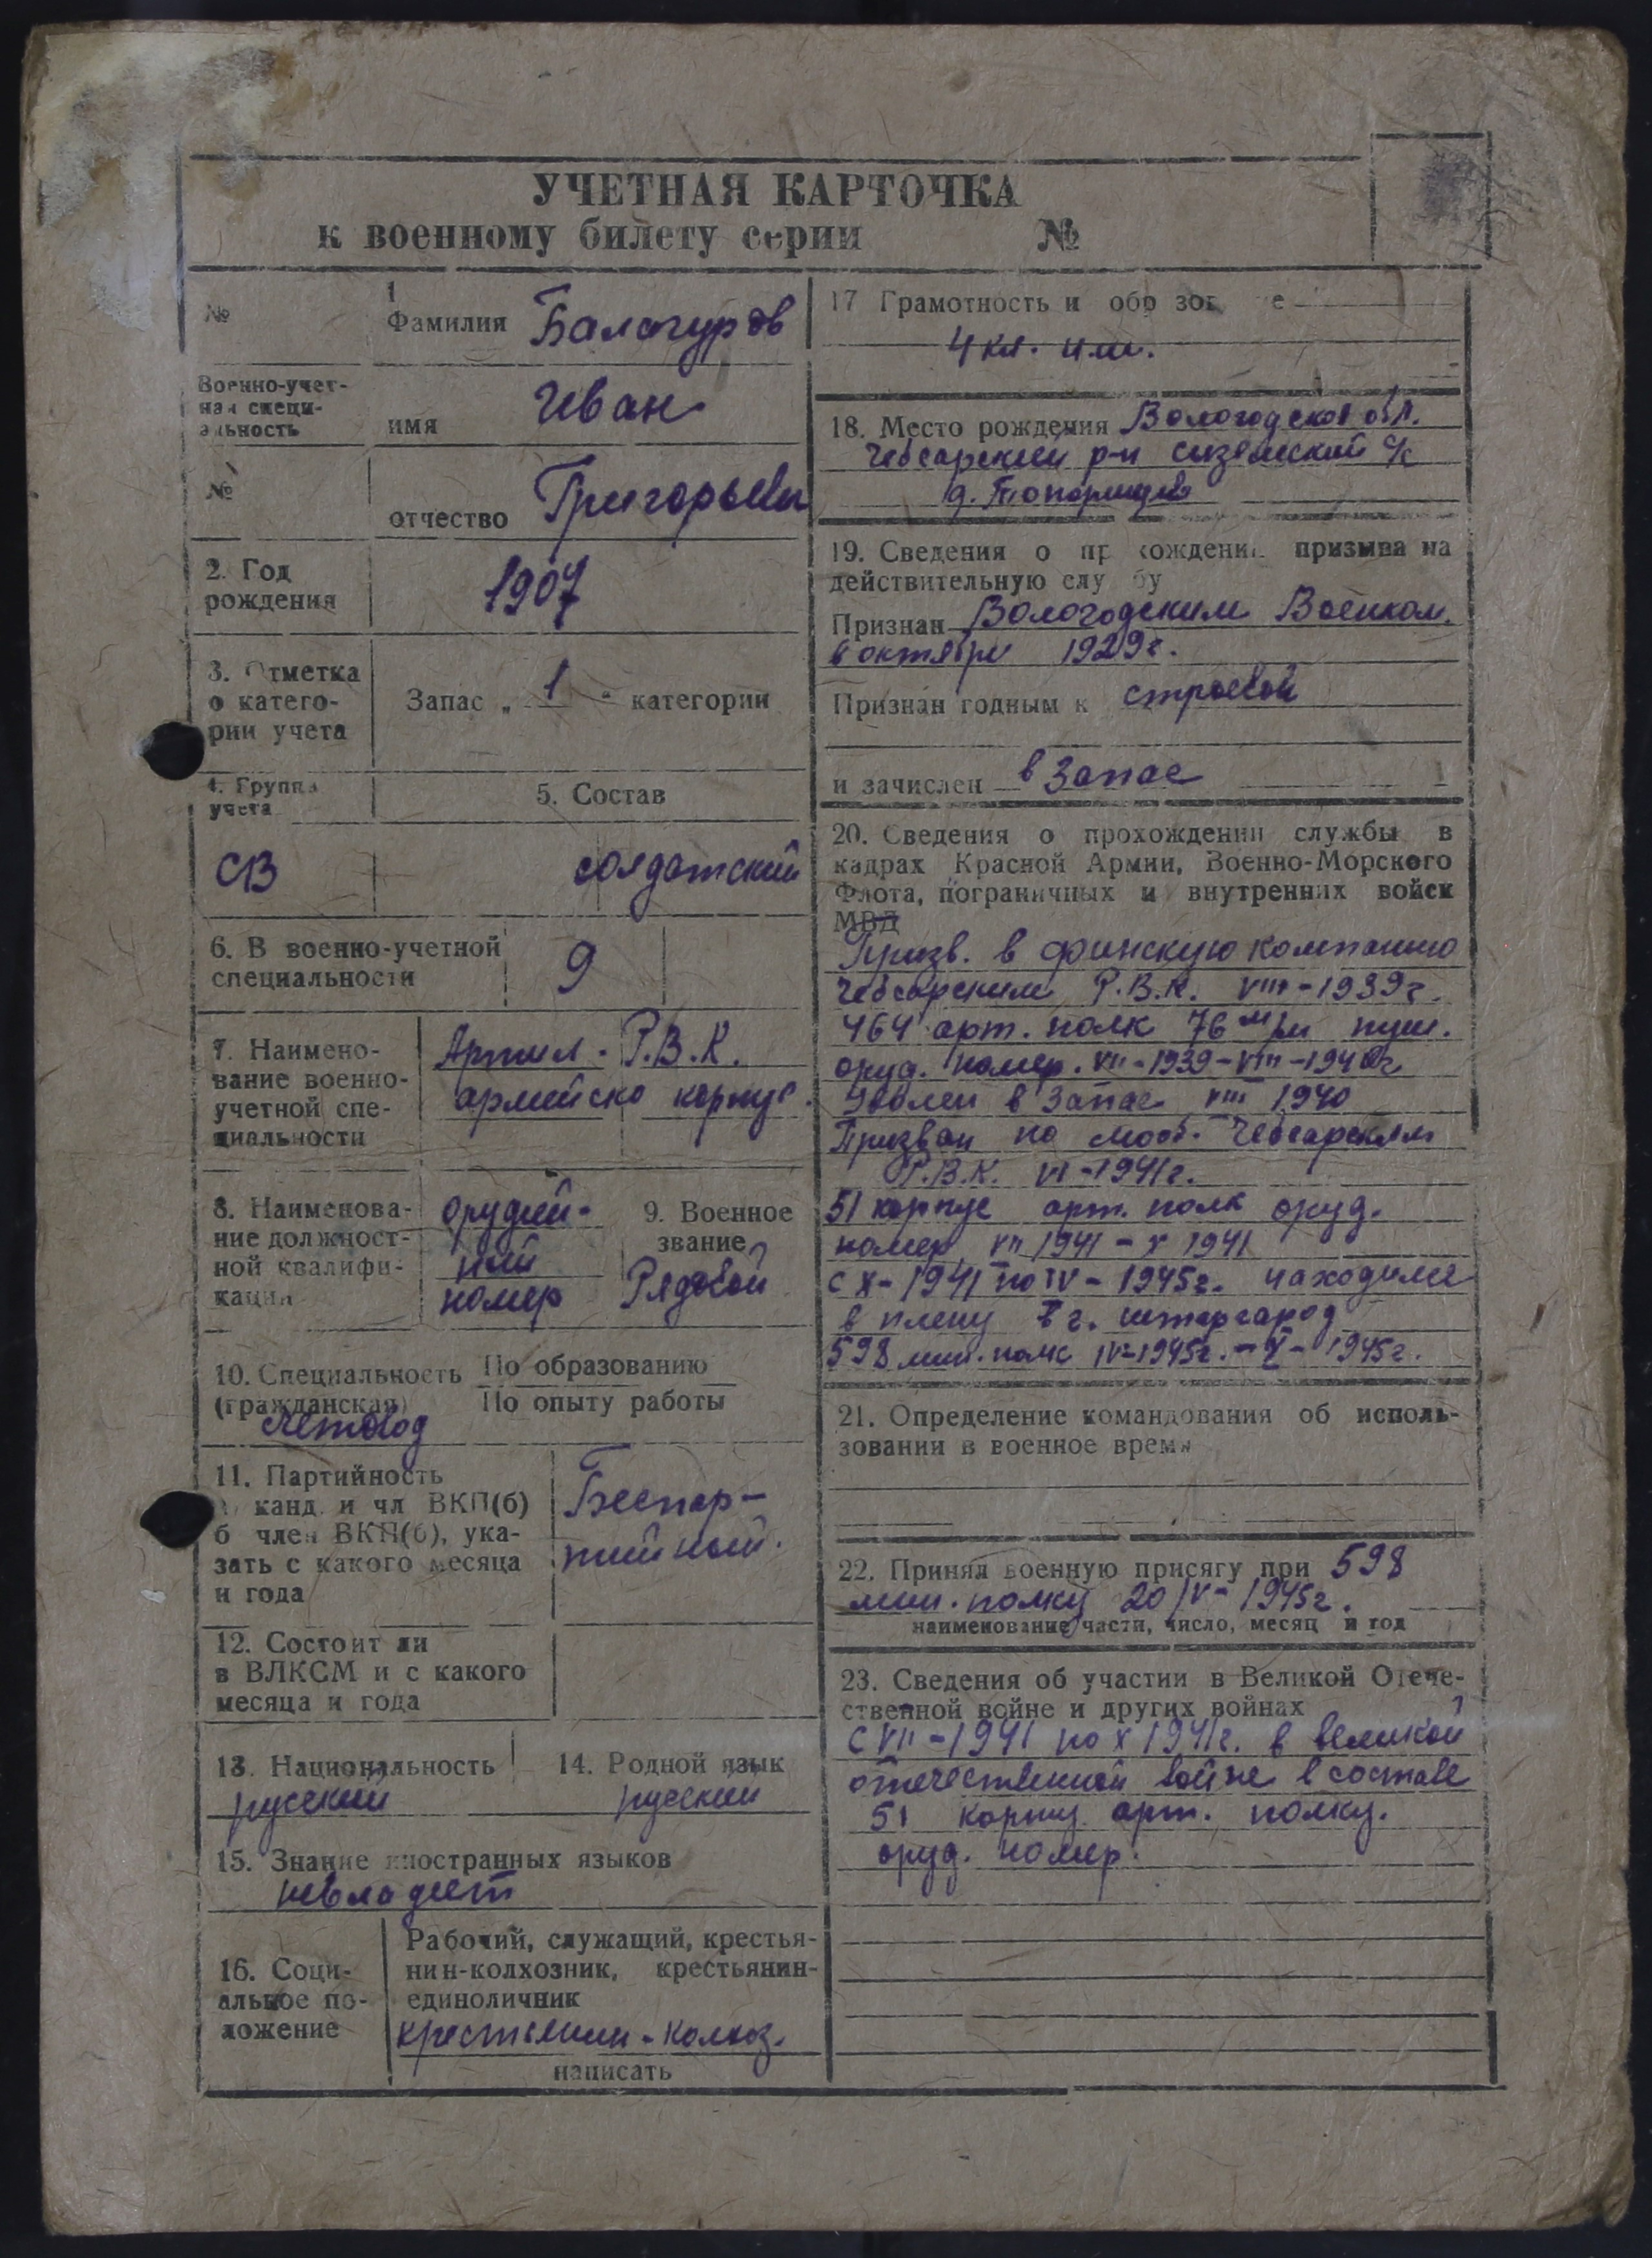 УЧЕТНАЯ КАРТОЧКА
к военному билету серии №
№
1
Фамилия Балагуров
Военно-учет-
ная специ-
альность
имя Иван
№
отчество Григорьевич
2. Год
рождения
1907
3. Отметка
о катего-
рии учета
Запас „ 1 " категории
4. Группа
учета
5. Состав
СВ солдатский
6. В военно-учетной
специальности
9
7. Наимено-
вание военно-
учетной спе-
циальности
Артил. Р.В.К.
армейско корпус.
8. Наименова-
ние должност-
ной квалифи-
кации
орудий-
ный
номер
9. Военное
звание
Рядовой
10. Специальность По образованию
(гражданская) По опыту работы
счетовод
11. Партийность
а) канд. и чл ВКП(б)
б член ВКП(б), ука-
зать с какого месяца
и года
Беспар-
тийный.
12. Состоит ли
в ВЛКСМ и с какого
месяца и года
13. Национальность
русский
14. Родной язык
русский
15. Знание иностранных языков
невладеет
16. Соци-
альное по-
ложение
Рабочий, служащий, крестья-
нин-колхозник, крестьянин-
единоличник
крестьянин-колхоз.
написать
17 Грамотность и обр зов е
4 кл. нш.
18. Место рождения Вологодская обл.
Чебсарский р-н Сиземский с/с
д.
19. Сведения о пр хождении призыва на
действительную слу бу
Признан Вологодским Военком.
в октябре 1929г.
Признан годным к строевой
и зачислен в запас
20. Сведения о прохождении службы в
кадрах Красной Армии, Военно-Морского
Флота, пограничных и внутренних войск
МВД
Призв. в финскую компанию
Чебсарским Р.В.К. VIII-1939г.
464 арт. полк 76 м/м пуш.
оруд. номер. VII-1939-VIII-1940г
Уволен в запас VIII 1940
Призван по моб. Чебсарским
Р.В.К. VI-1941г.
51 корпус арт. полк оруд.
номер VII 1941 - X 1941
с X-1941 по IV-1945г. находился
в плену в г.
598 мин. полк IV-1945г. - X - 1945г.
21. Определение командования об исполь-
зовании в военное время
22. Принял военную присягу при 598
мин. полку 20/IV-1945г.
наименование части, число, месяц и год
23. Сведения об участии в Великой Отече-
ственной войне и других войнах
с VII-1941 по X 1941г. в великой
отечественной войне в составе
51 корпу. арт. полку.
оруд. номер.